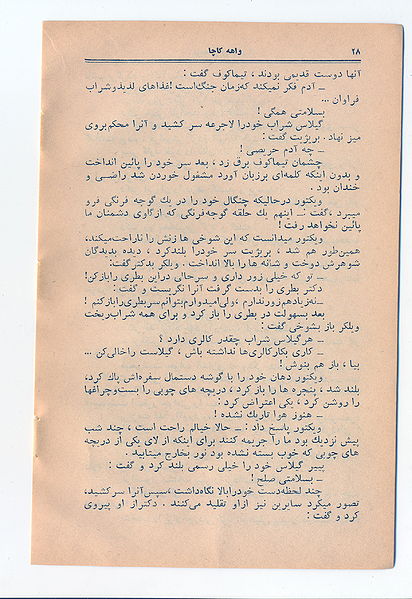 ۲۸
واهه کاچا
آنها دوست قدیمی بودند ، تیماکوف گفت :
ــ آدم فکر نمیکند که‌زمان جنگ‌است !غذاهای لذیذوشراب
فراوان ...
بسلامتی همگی !
گیلاس شراب خودرا لاجرعه سر کشید و آنرا محکم‌بروی
میز نهاد . بریژیت گفت :
ــ چه آدم حریصی !
چشمان تیماکوف برق زد ، بعد سر خود را پائین انداخت
و بدون اینکه کلمه‌ای برزبان آورد مشغول خوردن شد راضی و
خندان بود .
ویکتور درحالیکه چنگال خود را در یك گوجه فرنگی فرو
میبرد ،گفت ــ اینهم یك حلقه گوجه‌فرنگی که ازگلوی دشمنان ما
پائین نخواهد رفت !
ویکتور میدانست که این شوخی ها زنش را ناراحت‌میکند،
همین‌طور هم شد ، بریژیت سر خودرا بلندکرد ، دیده بدیدگان
شوهرش دوخت و شانه ها را بالا انداخت . ویلکر بدکتر گفت:
ــ تو که خیلی زور داری و سرحالی دراین بطری رابازکن!
دکتر بطری را بدست گرفت آنرا نگریست و گفت :
ــ نه‌زیادهم‌زورندارم ،ولی‌امیدوارم‌بتوانم‌سربطری‌رابازکنم !
بعد بسهولت در بطری را باز کرد و برای همه شراب‌ریخت
ویلکر باز بشوخی گفت :
ــ هرگیلاس شراب چقدر کالری دارد ؟
ــ کاری بکارکالری‌ها نداشته باش ، گیلاست راخالی‌کن ...
بیا ، باز هم بنوش !
ویکتور دهان خود را با گوشه دستمال سفره‌اش پاك کرد،
بلند شد ، پنجره ها را باز کرد ، دریچه های چوبی را بست‌وچراغها
را روشن کرد ، یکی اعتراض کرد :
ــ هنوز هوا تاریك نشده !
ویکتور پاسخ داد : ــ حالا خیالم راحت است ، چند شب
پیش نزدیك بود ما را جریمه کنند برای اینکه از لای یکی از دریچه
های چوبی که خوب بسته نشده بود نور بخارج میتابید .
پییر گیلاس خود را خیلی رسمی بلند کرد و گفت :
ــ بسلامتی صلح !
چند لحظه‌دست خودرابالا نگاه‌داشت ،سپس‌آنرا سرکشید،
تصور میکرد سایرین نیز ازاو تقلید می‌کنند . دکتراز او پیروی
کرد و گفت :